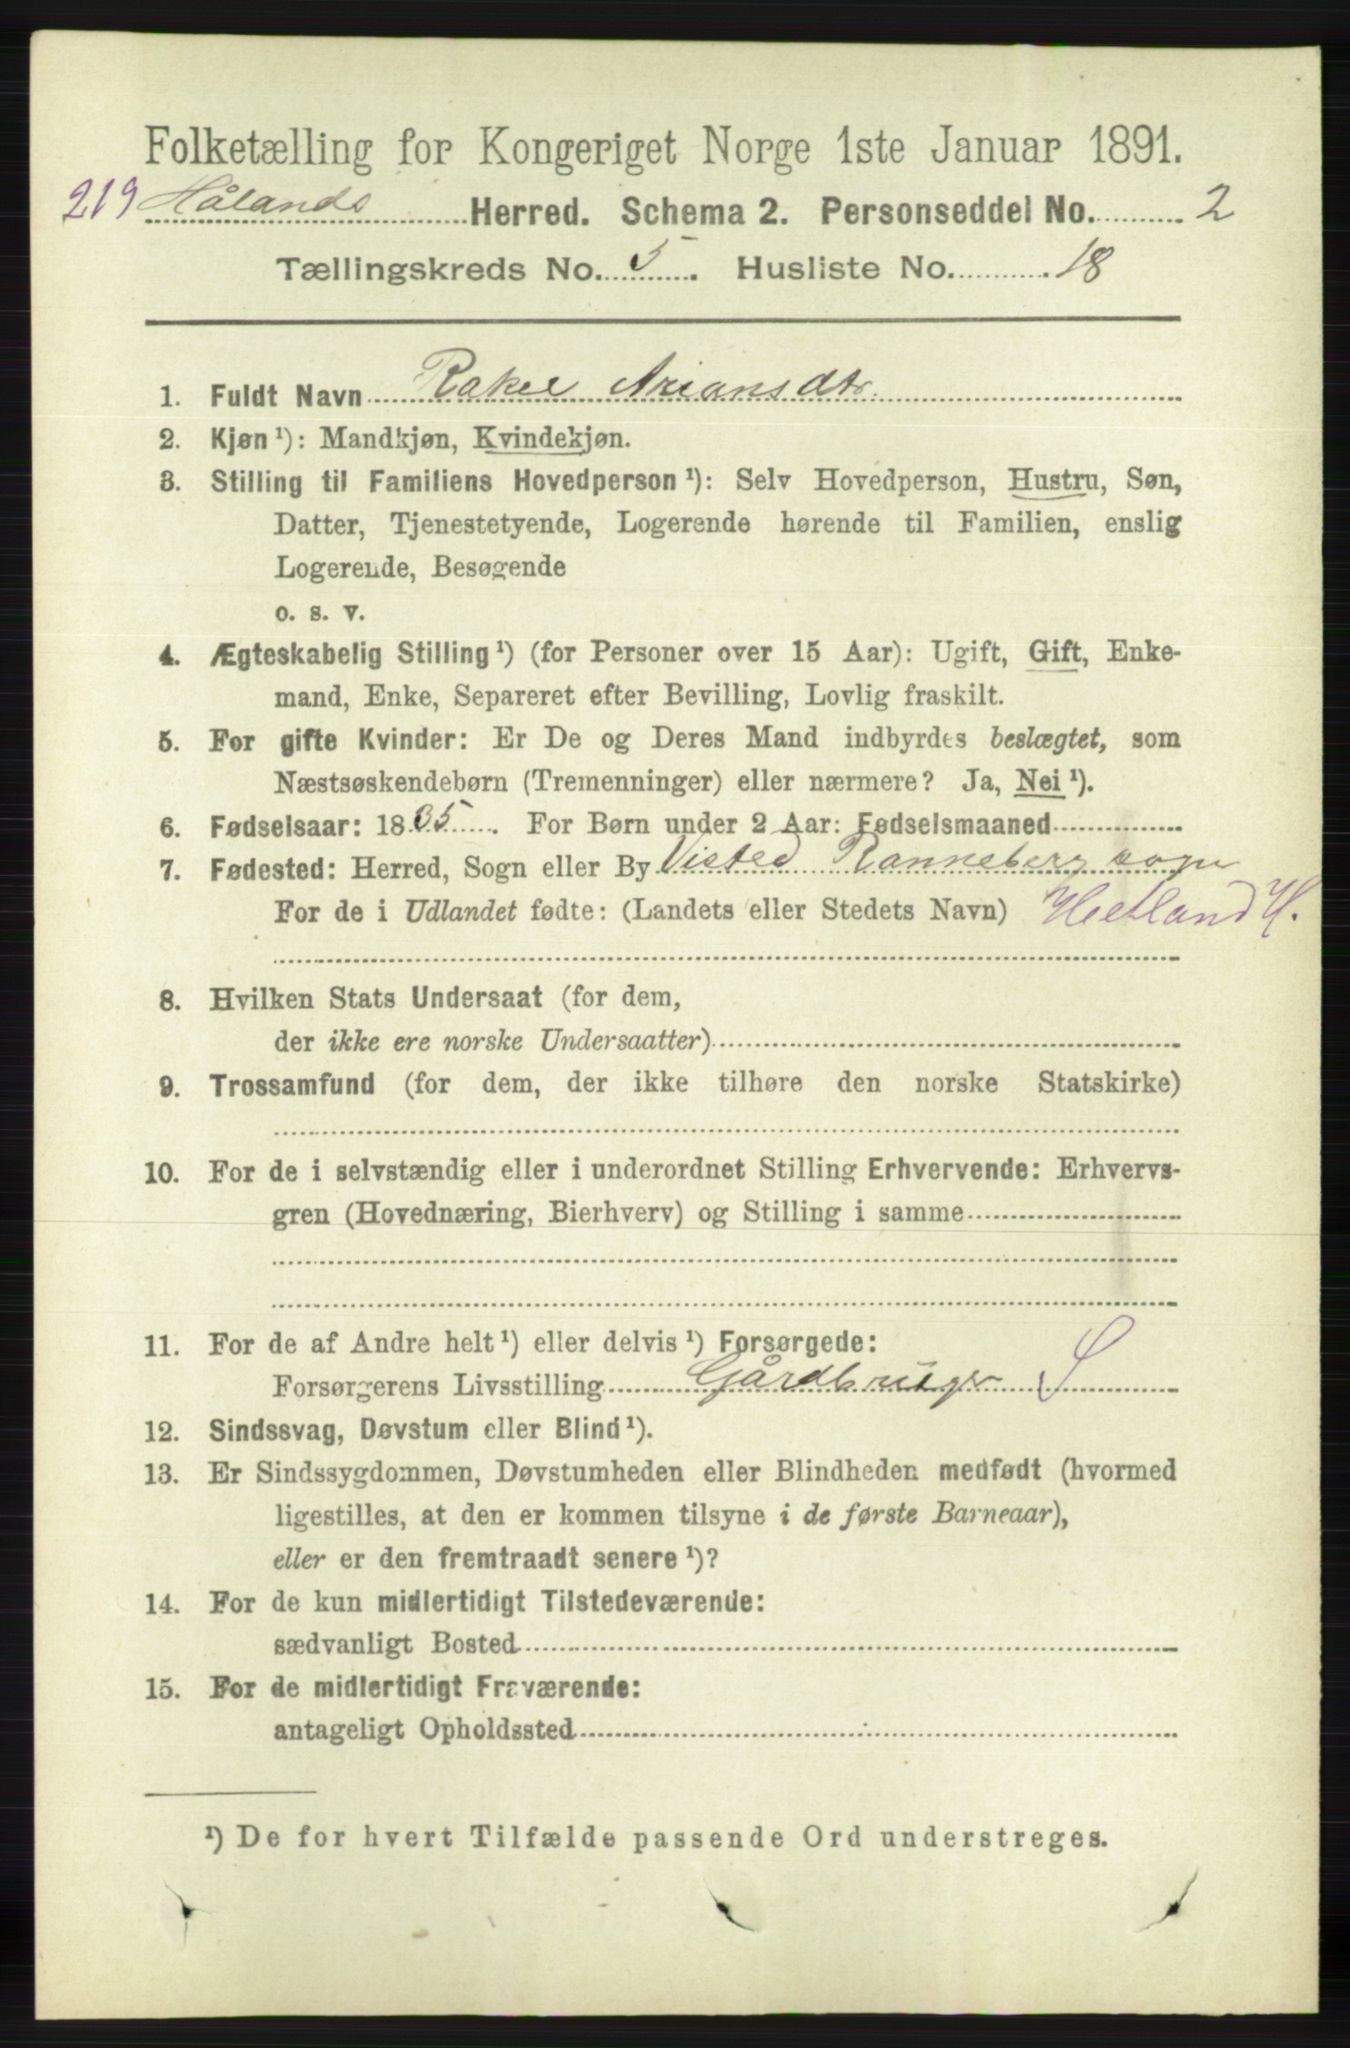 Folketælling for Kongeriget Norge 1ste Januar 1891.
219 Hålands Herred. Schema 2. Personseddel No. 2
Tællingskreds No. 5. Husliste No. 18
1. Fuldt Navn Rakel Ariansdtr.
2. Kjøn ¹): Mandkjøn, Kvindekjøn.
3. Stilling til Familiens Hovedperson ¹): Selv Hovedperson, Hustru, Søn,
Datter, Tjenestetyende, Logerende hørende til Familien, enslig
Logerende, Besøgende
o. s. v.
4. Ægteskabelig Stilling ¹) (for Personer over 15 Aar): Ugift, Gift, Enke-
mand, Enke, Separeret efter Bevilling, Lovlig fraskilt.
5. For gifte Kvinder: Er De og Deres Mand indbyrdes beslægtet, som
Næstsøskendebørn (Tremenninger) eller nærmere? Ja, Nei ¹).
6. Fødselsaar: 1835. For Børn under 2 Aar: Fødselsmaaned
7. Fødested: Herred, Sogn eller By Visted Ranneberg sogn
For de i Udlandet fødte: (Landets eller Stedets Navn) Hetland H.
8. Hvilken Stats Undersaat (for dem,
der ikke ere norske Undersaatter)
9. Trossamfund (for dem, der ikke tilhøre den norske Statskirke)
10. For de i selvstændig eller i underordnet Stilling Erhvervende: Erhvervs-
gren (Hovednæring, Bierhverv) og Stilling i samme
11. For de af Andre helt ¹) eller delvis ¹) Forsørgede:
Forsørgerens Livsstilling Gårdbruger S
12. Sindssvag, Døvstum eller Blind ¹).
13. Er Sindssygdommen, Døvstumheden eller Blindheden medfødt (hvormed
ligestilles, at den er kommen tilsyne i de første Barneaar),
eller er den fremtraadt senere ¹)?
14. For de kun midlertidigt Tilstedeværende:
sædvanligt Bosted
15. For de midlertidigt Fraværende:
antageligt Opholdssted
¹) De for hvert Tilfælde passende Ord understreges.